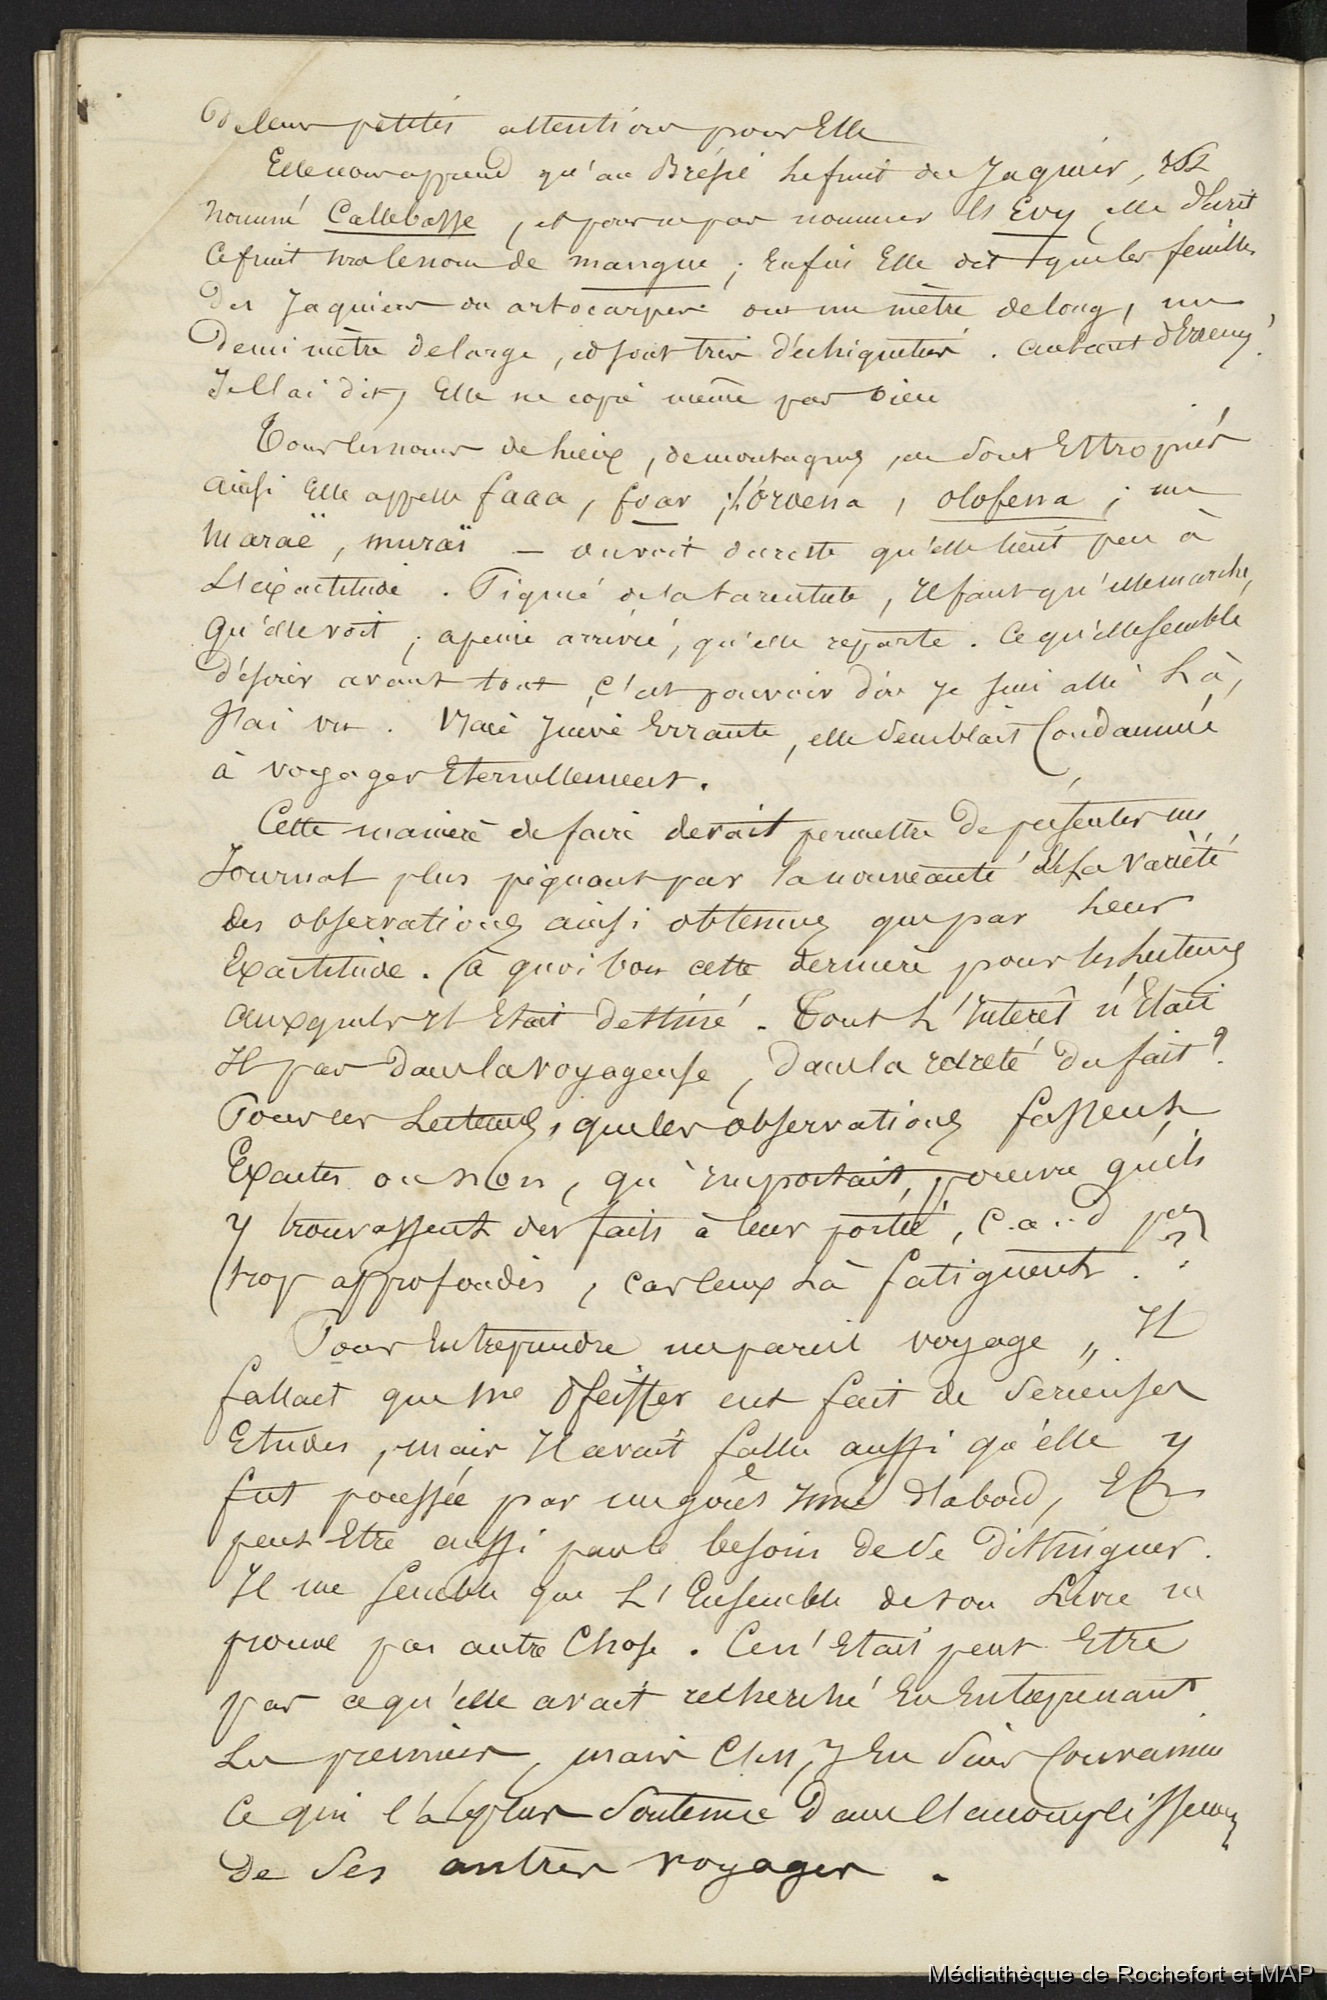 De leurs petites attentions pour Elle
Elle nous apprend qu'au Brésil le fruit du Jaquier, est
nommé Callebasse, et pour ne pas nommer les Evy, elle décrit
ce fruit sous le nom de mangue ; Enfin Elle dit que les feuilles
des Jaquiers ou artocarpes ont un mètre de long, un
Demi mètre de large, et sont très déchiquetées. Autant d'Erreurs !
Je l'ai dit, Elle ne copie même pas bien
Tous les noms de lieux, de montagnes, en sont Estropiés
ainsi Elle appelle faaa, foar ; l'oroena, olofena ; un
Maraë, muraï — on voit du reste qu'elle tient peu à
L'exactitude. Piqué de la tarentule, il faut qu'elle marche,
qu'elle voit ; a peine arrivée, qu'elle reparte. Ce qu'elle semble
désirer avant tout, c'est pouvoir dire je suis allé Là,
J'ai vu. Vrai Juive Errante, elle semblait Condamnée
à voyager Eternellement.
Cette manière de faire devait permettre De présenter un
Journal plus piquant par la nouveauté et la Variété
des observations ainsi obtenues que par leur
Exactitude. (à quoi bon cette dernière pour les Lecteurs
auxquels il Etait destiné. Tout L'Interêt n'Etait
Il pas dans la voyageuse, dans la rareté du fait ?
Pour ces Lecteurs, que les observations fassent
Exactes ou non, qu'importait, pourvu qu'ils
y trouvassent des faits à leur portée, c. a. d pas
trop approfondis, car ceux Là fatiguent.
Pour Entreprendre un pareil voyage, Il
fallait que Me Pfeiffer eut fait de sérieuses
Etudes, mais Il avait fallu aussi qu'elle y
fut poussée par un goût inné d'abord, Et
peut Etre aussi par le besoin de se distinguer.
Il me semble que L'Ensemble de son Livre ne
prouve pas autre Chose. Ce n'Etait peut Etre
pas ce qu'elle avait recherché En Entreprenant
Le premier, mais c'est, J'En suis Convaincu
Ce qui l'a le plus soutenue dans l'accomplissement
de ses autres voyages.
Médiathèque de Rochefort et MAP